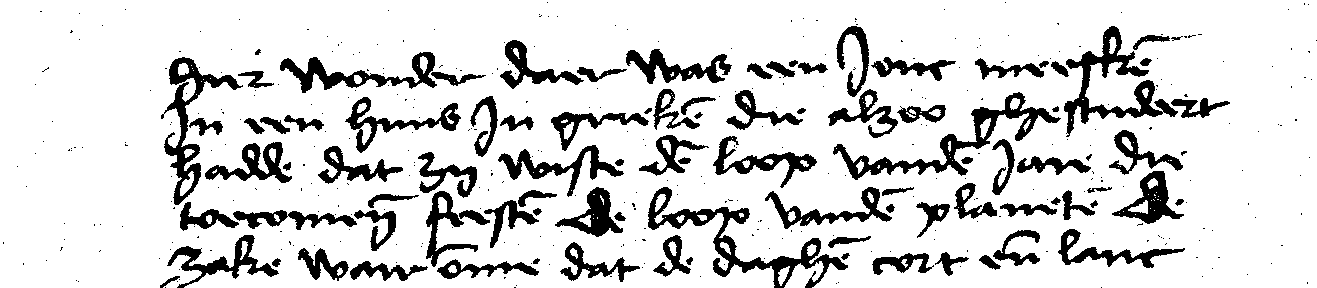 Hier wonder daer was een Jonc meeskē
In een huus In griekē die alzoo ghestudeert
hadde dat zy wiste dē loop vandē Jare die
toecomēn feestē De loop vandē planetē De
zake wair ōme dat de daghē cort eñ lanc